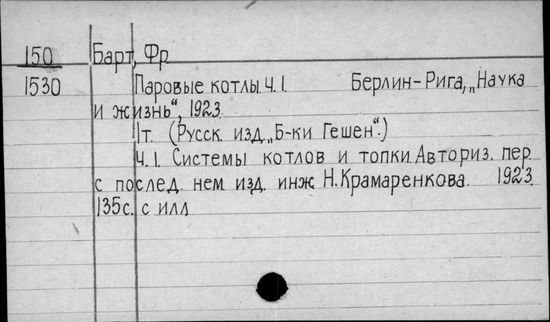 150 Барт, Фр.
1530 Паровые котлы. Ч.1. Берлин-Рига, „Наука
и жизнь“, 1923.
1т. (Русск. изд. „Б-ки Гешен“.)
Ч.1. Системы котлов и топки. Авториз. пер.
с послед. нем. изд. инж. Н. Крамаренкова. 1923.
135с. с илл.